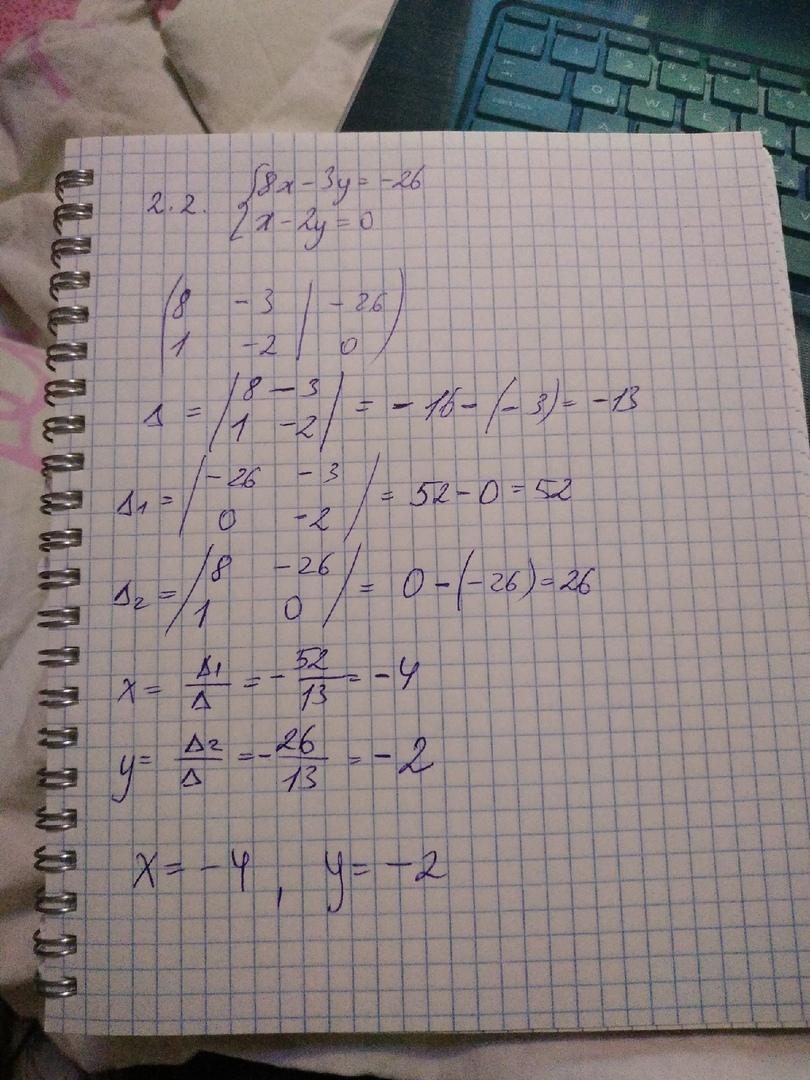 2.2. { 8x - 3y = -26
x - 2y = 0
( 8 -3 | -26 )
1 -2 | 0
Δ = | 8 -3 | = -16 - (-3) = -13
1 -2
Δ1 = | -26 -3 | = 52 - 0 = 52
0 -2
Δ2 = | 8 -26 | = 0 - (-26) = 26
1 0
x = Δ1/Δ = -52/13 = -4
y = Δ2/Δ = -26/13 = -2
x = -4, y = -2